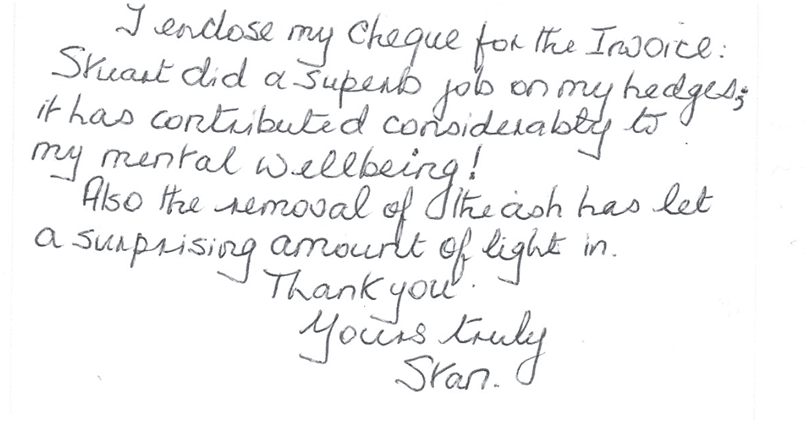 I enclose my cheque for the Invoice:
Stuart did a superb job on my hedges;
it has contributed considerably to
my mental wellbeing!
Also the removal of the ash has let
a surprising amount of light in.
Thank you.
Yours truly
Stan.